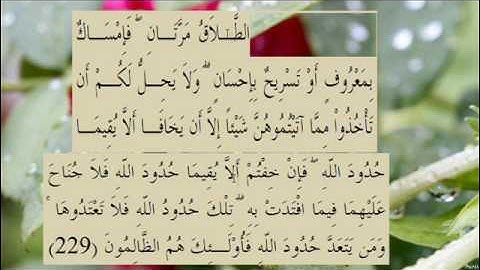 الطَّلَاقُ مَرَّتَانِ ۖ فَإِمْسَاكٌ
بِمَعْرُوفٍ أَوْ تَسْرِيحٌ بِإِحْسَانٍ ۗ وَلَا يَحِلُّ لَكُمْ أَن
تَأْخُذُوا مِمَّا آتَيْتُمُوهُنَّ شَيْئًا إِلَّا أَن يَخَافَا أَلَّا يُقِيمَا
حُدُودَ اللَّهِ ۖ فَإِنْ خِفْتُمْ أَلَّا يُقِيمَا حُدُودَ اللَّهِ فَلَا جُنَاحَ
عَلَيْهِمَا فِيمَا افْتَدَتْ بِهِ ۗ تِلْكَ حُدُودُ اللَّهِ فَلَا تَعْتَدُوهَا ۚ
وَمَن يَتَعَدَّ حُدُودَ اللَّهِ فَأُولَٰئِكَ هُمُ الظَّالِمُونَ (229)